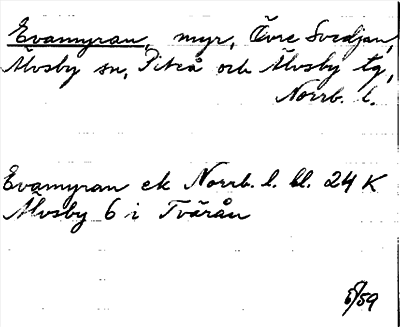 Evamyran, myr, Övre Svedjan,
Älvsby sn, Piteå och Älvsby tg,
Norrb. l.
Evamyran ek Norrb. l. bl. 24 K
Älvsby 6 i Tvärån
/59